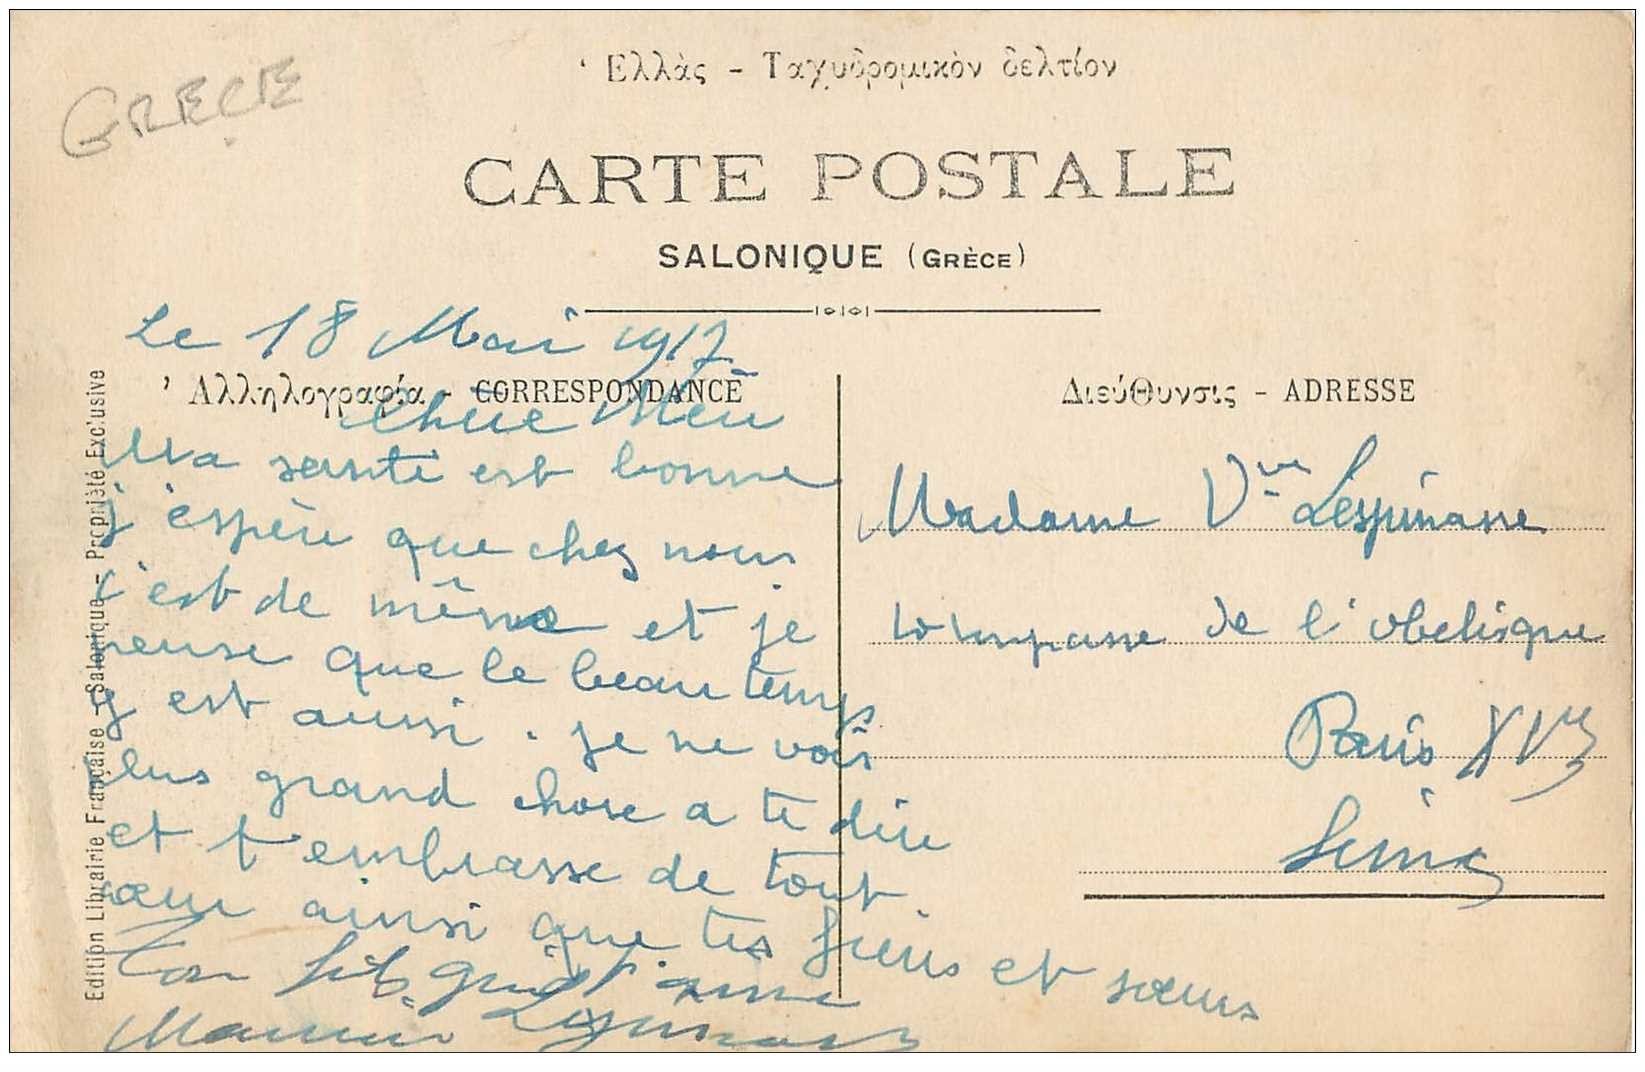 GRÈCE
‘Ελλὰς - Ταχυδρομικὸν δελτίον
CARTE POSTALE
SALONIQUE (GRÈCE)
Le 18 Mai 1917
’Αλληλογραφία - CORRESPONDANCE
Διεύθυνσις - ADRESSE
Chere Mère
Ma santé est bonne
j'espère que chez nous
c'est de même et je
pense que le beau temps
y est aussi. je ne vois
plus grand chose a te dire
et t'embrasse de tout
cœur ainsi que tes frères et sœurs
Ton fils qui t'aime
Maurice Lespinasse
Madame Vve Lespinasse
10 impasse de l'obelisque
Paris XV
Seine
Edition Librairie Française - Salonique - Propriété Exclusive